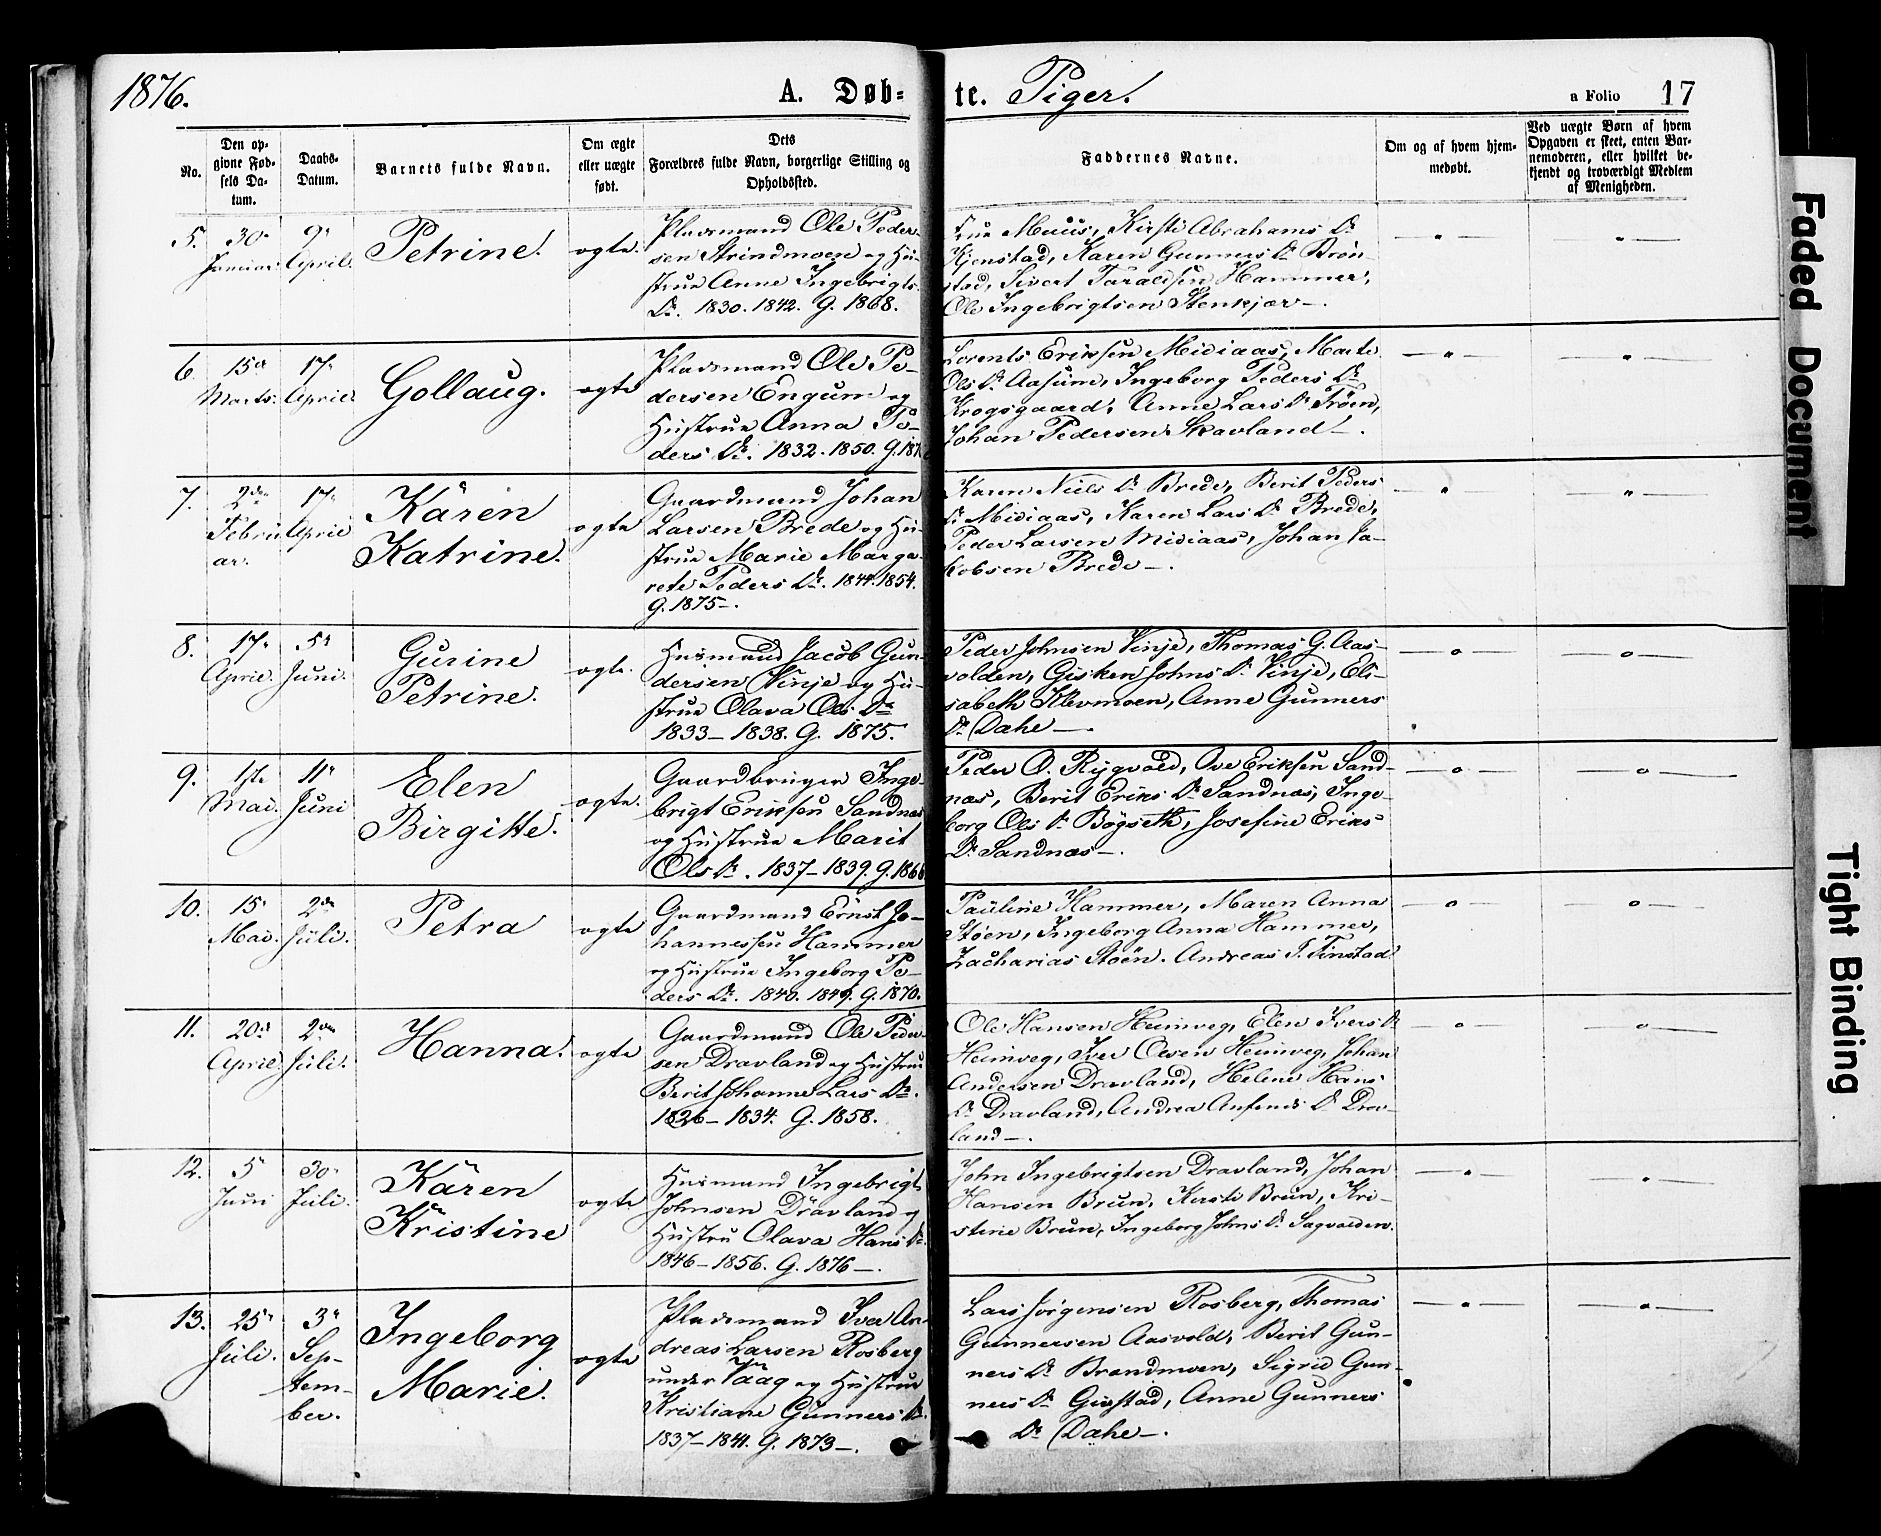 1876.
A. Døb=
te. Piger.
a Folio 17
No.
Den op-
givne Fød-
sels Da-
tum.
Daabs-
Datum.
Barnets fulde Navn.
Om ægte
eller uægte
født.
Dets
Forældres fulde Navn, borgerlige Stilling og
Opholdssted.
Faddernes Navne.
Om og af hvem hjem-
medøbt.
Ved uægte Børn af hvem
Opgaven er skeet, enten Bar-
nemoderen, eller hvilket be-
kjendt og troværdigt Medlem
af Menigheden.
5.
30
Januar.
9
April.
Petrine.
ægte.
Pladsmand Ole Peder-
sen Strindmoen og Hu-
strue Anne Ingebrigts
Dr. 1830. 1842. G. 1868.
Frue Muüs, Kirsti Abrahams Dr
Kjenstad, Karen Gunners Dr Brøn-
stad, Sivert Taraldsen Hammer,
Ole Ingebrigtsen Stenkjær-.
6.
15
Marts.
17
April
Gollaug.
ægte
Pladsmand Ole Pe-
dersen Engum og
Hustrue Anna Pe-
ders Dr. 1832. 1850. G. 187
Lorents Eriksen Midiaas, Marte
Ols Dr Aasum, Ingeborg Peders Dr
Krogsgaard, Anne Lars Dr Trøen,
Johan Pedersen Skavland-.
7.
2den
Febru
ar.
17
April
Karen
Katrine.
ægte
Gaardmand Johan
Larsen Brede og Hu-
strue Marie Marga-
rete Peders Dr. 1844. 1854.
G. 1875-.
Karen Niels Dr Brede, Berit Peders
Dr Midiaas, Karen Lars Dr Brede,
Peder Larsen Midiaas, Johan Ja-
kobsen Brede-.
8.
17
April.
5
Juni.
Gurine
Petrine.
ægte.
Husmand Jacob Gun-
dersen Vinje og Hu-
strue Olava Ols Dr
1833- 1838. G. 1875.
Peder Johnsen Vinje, Thomas G. Aas-
volden, Gisken Johns Dr Vinje, Eli-
sabeth Klevmoen, Anne Gunners
Dr Dahe-.
9.
1ste
Mai.
11
Juni
Elen
Birgitte.
ægte.
Gaardbruger Inge-
brigt Eriksen Sandnæs
og Hustrue Marit
Ols Dr. 1837- 1839. G. 1866
Peder O. Rygvold, Ove Eriksen Sand-
næs, Berit Eriks Dr Sandnæs, Inge-
borg Ols Dr Bøgseth, Josefine Eriks
Dr Sandnæs-.
10.
15
Mai.
2den
Juli.
Petra
ægte
Gaardmand Ernst Jo-
hannessen Hammer
og Hustrue Ingeborg Pe-
ders Dr. 1840. 1849. G. 1870.
Pauline Hammer, Maren Anna
Støen, Ingeborg Anna Hammer,
Zacharias Støen. Andreas T. Finstad.
11.
20
April
2den
Juli.
Hanna.
ægte
Gaardmand Ole Peder-
sen Dravland og Hustrue
Berit Johanne Lars Dr.
1826- 1834. G. 1858.
Ole Hansen Heimveg, Elen Ivers Dr
Heimveg, Iver Olsen Heimveg, Johan
Andersen Dravland, Helene Hans
Dr Dravland, Andrea Anfinds Dr Drav-
land-.
12.
5
Juni
30
Juli.
Karen
Kristine
ægte
Husmand Ingebrigt
Johnsen Dravland og
Hustru Olava Hans Dr.
1846- 1856. G. 1876-.
John Ingebrigtsen Dravland, Johan
Hansen Brun, Kirsti Brun, Kri-
stine Brun, Ingeborg Johns Dr Sagvolden.
13.
25
Juli.
3
Sep-
tem-
ber.
Ingeborg
Marie.
ægte
Pladsmand Iver An-
dreas Larsen Rosberg
under Vaag og Hustrue
Kristiane Gunners Dr.
1837- 1841. G. 1873-.
Lars Jørgensen Rosberg, Thomas
Gunnersen Aasvold, Berit Gun-
ners Dr Brandmoen, Sigrid Gun-
ners Dr Givstad, Anne Gunners
Dr Dahe-.
Faded Document
Tight Binding